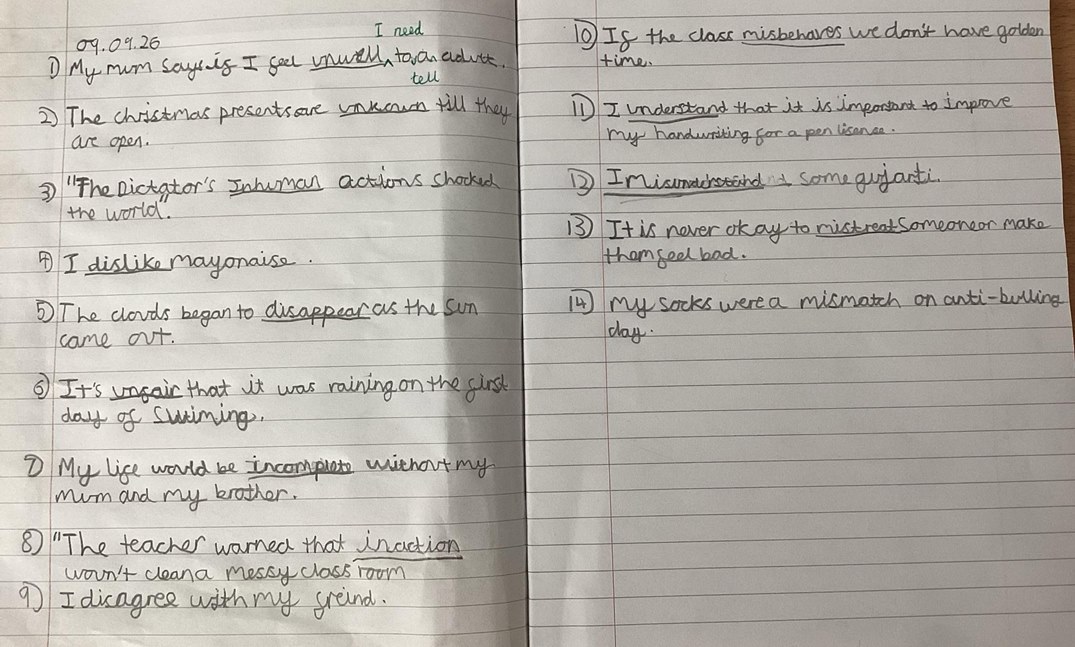 09.09.26
I need
1) My mum says if I feel unwell ^ to an adult.
tell
2) The christmas presents are unknown till they
are open.
3) "The Dictator's Inhuman actions shocked
the world".
4) I dislike mayonaise.
5) The clouds began to disappear as the sun
came out.
6) It's unfair that it was raining on the first
day of swiming.
7) My life would be incomplete without my
mum and my brother.
8) "The teacher warned that inaction
woun't clean a messy class room
9) I disagree with my freind.
10) If the class misbehaves we don't have golden
time.
11) I understand that it is important to improve
my handwriting for a pen lisence.
12) I misunderstand some gujarti.
13) It is never okay to mistreat someone or make
them feel bad.
14) My socks were a mismatch on anti-bulling
day.